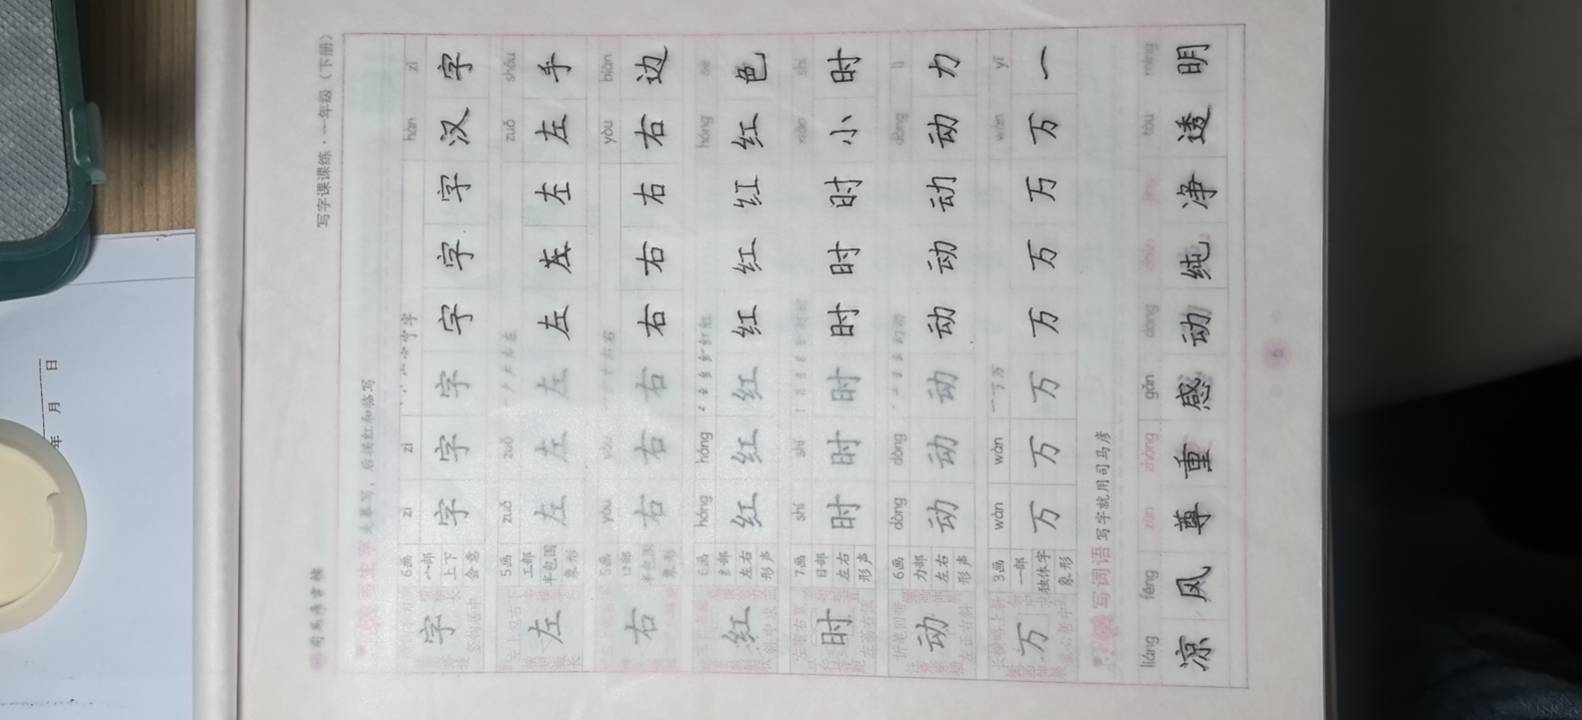 司马彦字帖 写字课课练·一年级(下册)
写生字 先摹写，后描红和临写
6画 zì zì hàn zì
宀部
上下
会意
字 字 字 字 字 字 字 汉 字
5画 zuǒ zuǒ zuǒ shǒu
工部
半包围
象形
左 左 左 左 左 左 左 左 手
5画 yòu yòu yòu biān
口部
半包围
象形
右 右 右 右 右 右 右 右 边
6画 hóng hóng hóng sè
纟部
左右
形声
红 红 红 红 红 红 红 红 色
7画 shí shí xiǎo shí
日部
左右
形声
时 时 时 时 时 时 时 小 时
6画 dòng dòng dòng lì
力部
左右
形声
动 动 动 动 动 动 动 动 力
3画 wàn wàn wàn yī
一部
独体字
象形
万 万 万 万 万 万 万 万 一
写词语 写字就用司马彦
liáng fēng zūn zhòng gǎn dòng tòu míng
凉 风 尊 重 感 动 纯 净 透 明
6
年 月 日